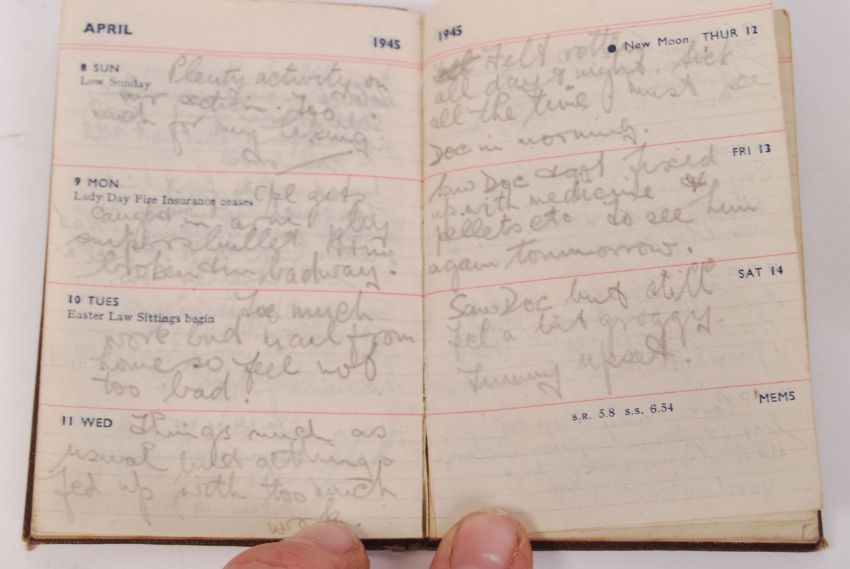 APRIL 1945
8 SUN
Low Sunday Plenty activity on
our section. Too
much for my liking
9 MON
Lady Day Fire Insurance ceases Cpl gets
caught in arm by
snipers bullet Arm
broken & in bad way.
10 TUES
Easter Law Sittings begin Too much
work but mail from
home so feel not
too bad.
11 WED Things much as
usual but
fed up with too much
work.
1945
New Moon THUR 12
Felt rotten
all day & night. Sick
all the time must see
Doc in morning.
FRI 13
Saw Doc & got fixed
up with medicine &
pellets etc to see him
again tommorrow.
SAT 14
Saw Doc but still
feel a bit groggy.
Tummy upset.
MEMS
S.R. 5.8 S.S. 6.54